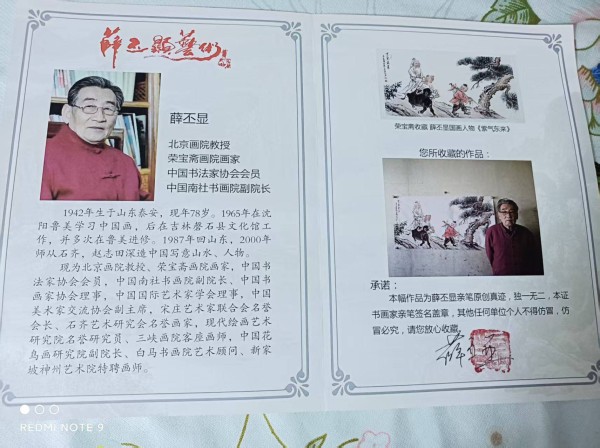 薛丕顯藝術
薛丕显
北京画院教授
荣宝斋画院画家
中国书法家协会会员
中国南社书画院副院长
1942年生于山东泰安，现年78岁。1965年在沈
阳鲁美学习中国画，后在吉林磐石县文化馆工
作，并多次在鲁美进修。1987年回山东，2000年
师从石齐，赵志田深造中国写意山水、人物。
现为北京画院教授、荣宝斋画院画家，中国书
法家协会会员，中国南社书画院副院长、中国书
画家协会理事，中国国际艺术家学会理事，中国
美术家交流协会副主席，宋庄艺术家联合会名誉
会长、石齐艺术研究会名誉画家，现代绘画艺术
研究院名誉研究员、三峡画院客座画师，中国花
鸟画研究院副院长、白马书画院艺术顾问、新家
坡神州艺术院特聘画师。
荣宝斋收藏 薛丕显国画人物《紫气东来》
您所收藏的作品：
承诺：
本幅作品为薛丕显亲笔原创真迹，独一无二，本证
书画家亲笔签名盖章，其他任何单位个人不得仿冒，仿
冒必究，请您放心收藏。
薛丕显
REDMI NOTE 9